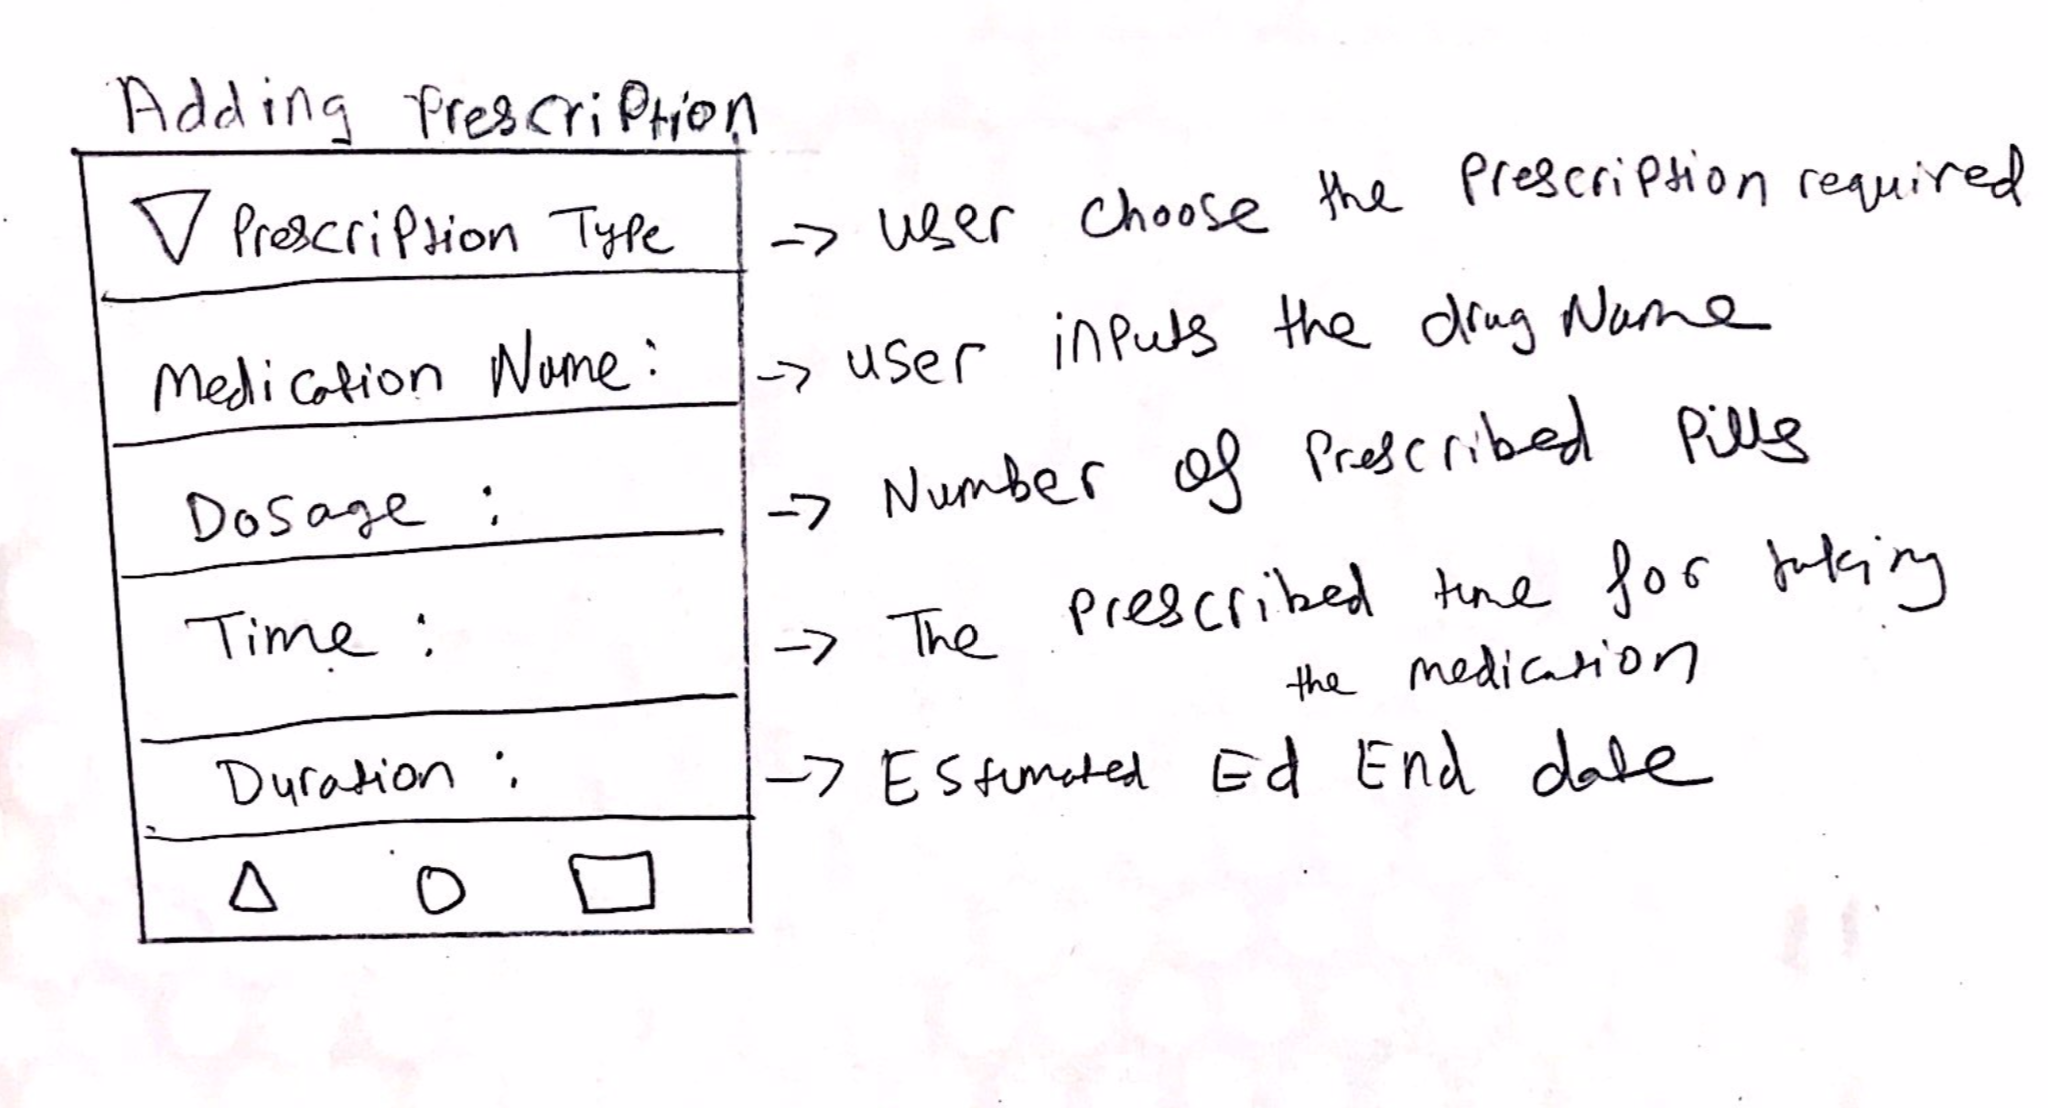 Adding Prescription
Prescription Type -> user choose the Prescription required
Medication Name: -> user inputs the drug Name
Dosage : -> Number of Prescribed Pills
Time : -> The Prescribed time for taking
the medication
Duration : -> Estimated Ed End date